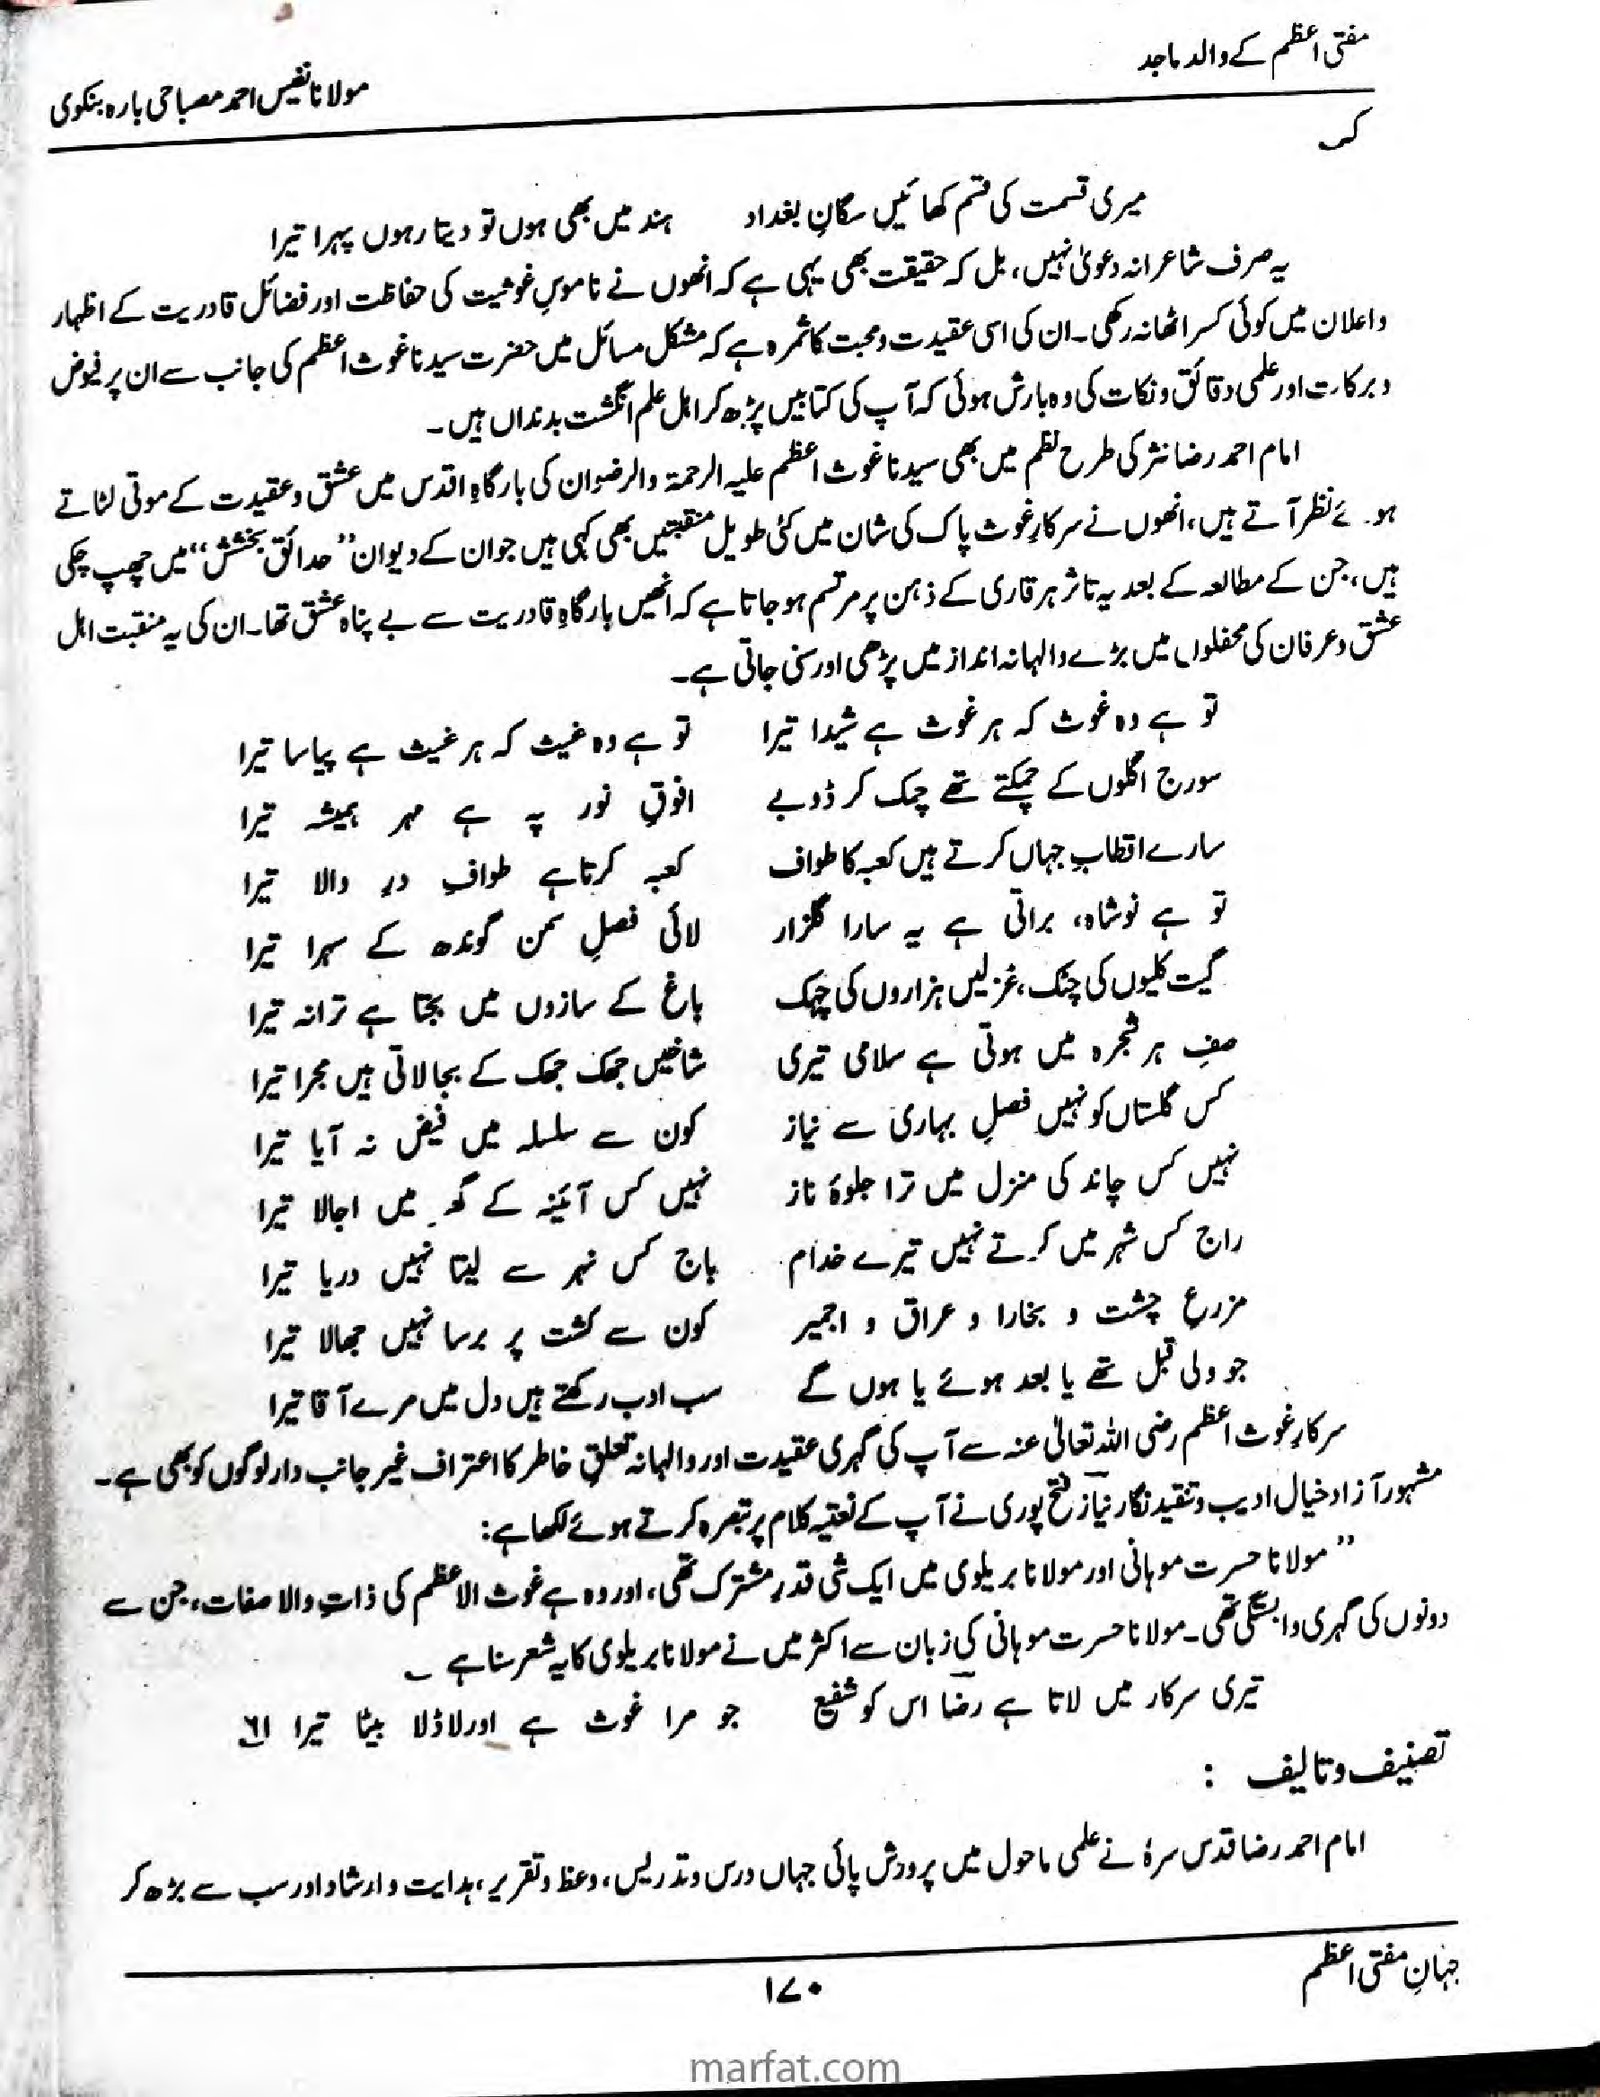 مفتی اعظم کے والد ماجد
مولانا نفیس احمد مصباحی بارہ بنکوی
کہ
میری قسمت کی قسم کھائیں سگانِ بغداد ہند میں بھی ہوں تو دیتا رہوں پہرا تیرا
یہ صرف شاعرانہ دعویٰ نہیں، بل کہ حقیقت بھی یہی ہے کہ انھوں نے ناموسِ غوثیت کی حفاظت اور فضائل قادریت کے اظہار
و اعلان میں کوئی کسر اٹھا نہ رکھی۔ ان کی اسی عقیدت و محبت کا ثمرہ ہے کہ مشکل مسائل میں حضرت سیدنا غوث اعظم کی جانب سے ان پر فیوض
و برکارت اور علمی دقائق و نکات کی وہ بارش ہوئی کہ آپ کی کتابیں پڑھ کر اہل علم انگشت بدنداں ہیں۔
امام احمد رضا نثر کی طرح نظم میں بھی سیدنا غوث اعظم علیہ الرحمۃ والرضوان کی بارگاہِ اقدس میں عشق و عقیدت کے موتی لٹاتے
ہوئے نظر آتے ہیں، انھوں نے سرکارِ غوث پاک کی شان میں کئی طویل منقبتیں بھی کہی ہیں جو ان کے دیوان ’’حدائق بخشش‘‘ میں چھپ چکی
ہیں، جن کے مطالعہ کے بعد یہ تاثر ہر قاری کے ذہن پر مرتسم ہو جاتا ہے کہ انھیں بارگاہِ قادریت سے بے پناہ عشق تھا۔ ان کی یہ منقبت اہل
عشق و عرفان کی محفلوں میں بڑے والہانہ انداز میں پڑھی اور سنی جاتی ہے۔
تو ہے وہ غوث کہ ہر غوث ہے شیدا تیرا تو ہے وہ غیث کہ ہر غیث ہے پیاسا تیرا
سورج اگلوں کے چمکتے تھے چمک کر ڈوبے افوقِ نور پہ ہے مہر ہمیشہ تیرا
سارے اقطابِ جہاں کرتے ہیں کعبہ کا طواف کعبہ کرتا ہے طوافِ درِ والا تیرا
تو ہے نوشاہ، براتی ہے یہ سارا گلزار لائی فصلِ سمن گوندھ کے سہرا تیرا
گیت کلیوں کی چٹک، غزلیں ہزاروں کی چہک باغ کے سازوں میں بجتا ہے ترانہ تیرا
صفِ ہر شجرہ میں ہوتی ہے سلامی تیری شاخیں جھک جھک کے بجا لاتی ہیں مجرا تیرا
کس گلستاں کو نہیں فصلِ بہاری سے نیاز کون سے سلسلہ میں فیض نہ آیا تیرا
نہیں کس چاند کی منزل میں ترا جلوۂ ناز نہیں کس آئینہ کے گھر میں اجالا تیرا
راج کس شہر میں کرتے نہیں تیرے خدام باج کس نہر سے لیتا نہیں دریا تیرا
مزرعِ چشت و بخارا و عراق و اجمیر کون سے کشت پر برسا نہیں جھالا تیرا
جو ولی قبل تھے یا بعد ہوئے یا ہوں گے سب ادب رکھتے ہیں دل میں مرے آقا تیرا
سرکارِ غوث اعظم رضی اللہ تعالیٰ عنہ سے آپ کی گہری عقیدت اور والہانہ تعلقِ خاطر کا اعتراف غیر جانب دار لوگوں کو بھی ہے۔
مشہور آزاد خیال ادیب و تنقید نگار نیاز فتح پوری نے آپ کے نعتیہ کلام پر تبصرہ کرتے ہوئے لکھا ہے:
’’مولانا حسرت موہانی اور مولانا بریلوی میں ایک شی قدرِ مشترک تھی، اور وہ ہے غوث الاعظم کی ذاتِ والا صفات، جن سے
دونوں کی گہری وابستگی تھی۔ مولانا حسرت موہانی کی زبان سے اکثر میں نے مولانا بریلوی کا یہ شعر سنا ہے ؎
تیری سرکار میں لاتا ہے رضا اس کو شفیع جو مرا غوث ہے اور لاڈلا بیٹا تیرا ۶۱
تصنیف و تالیف :
امام احمد رضا قدس سرۂ نے علمی ماحول میں پرورش پائی جہاں درس و تدریس، وعظ و تقریر، ہدایت و ارشاد اور سب سے بڑھ کر
جہانِ مفتی اعظم
۱۷۰
marfat.com